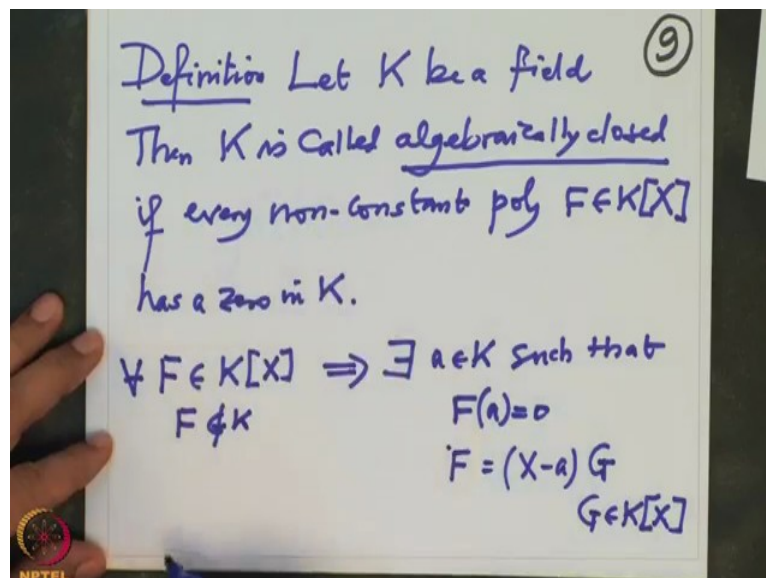 9
Definition Let K be a field
Then K is Called algebraically closed
if every non-constant poly F∈K[X]
has a zero in K.
∀ F∈K[X] ⟹ ∃ a∈K such that
F∉K F(a)=0
F=(X-a) G
G∈K[X]
NPTEL